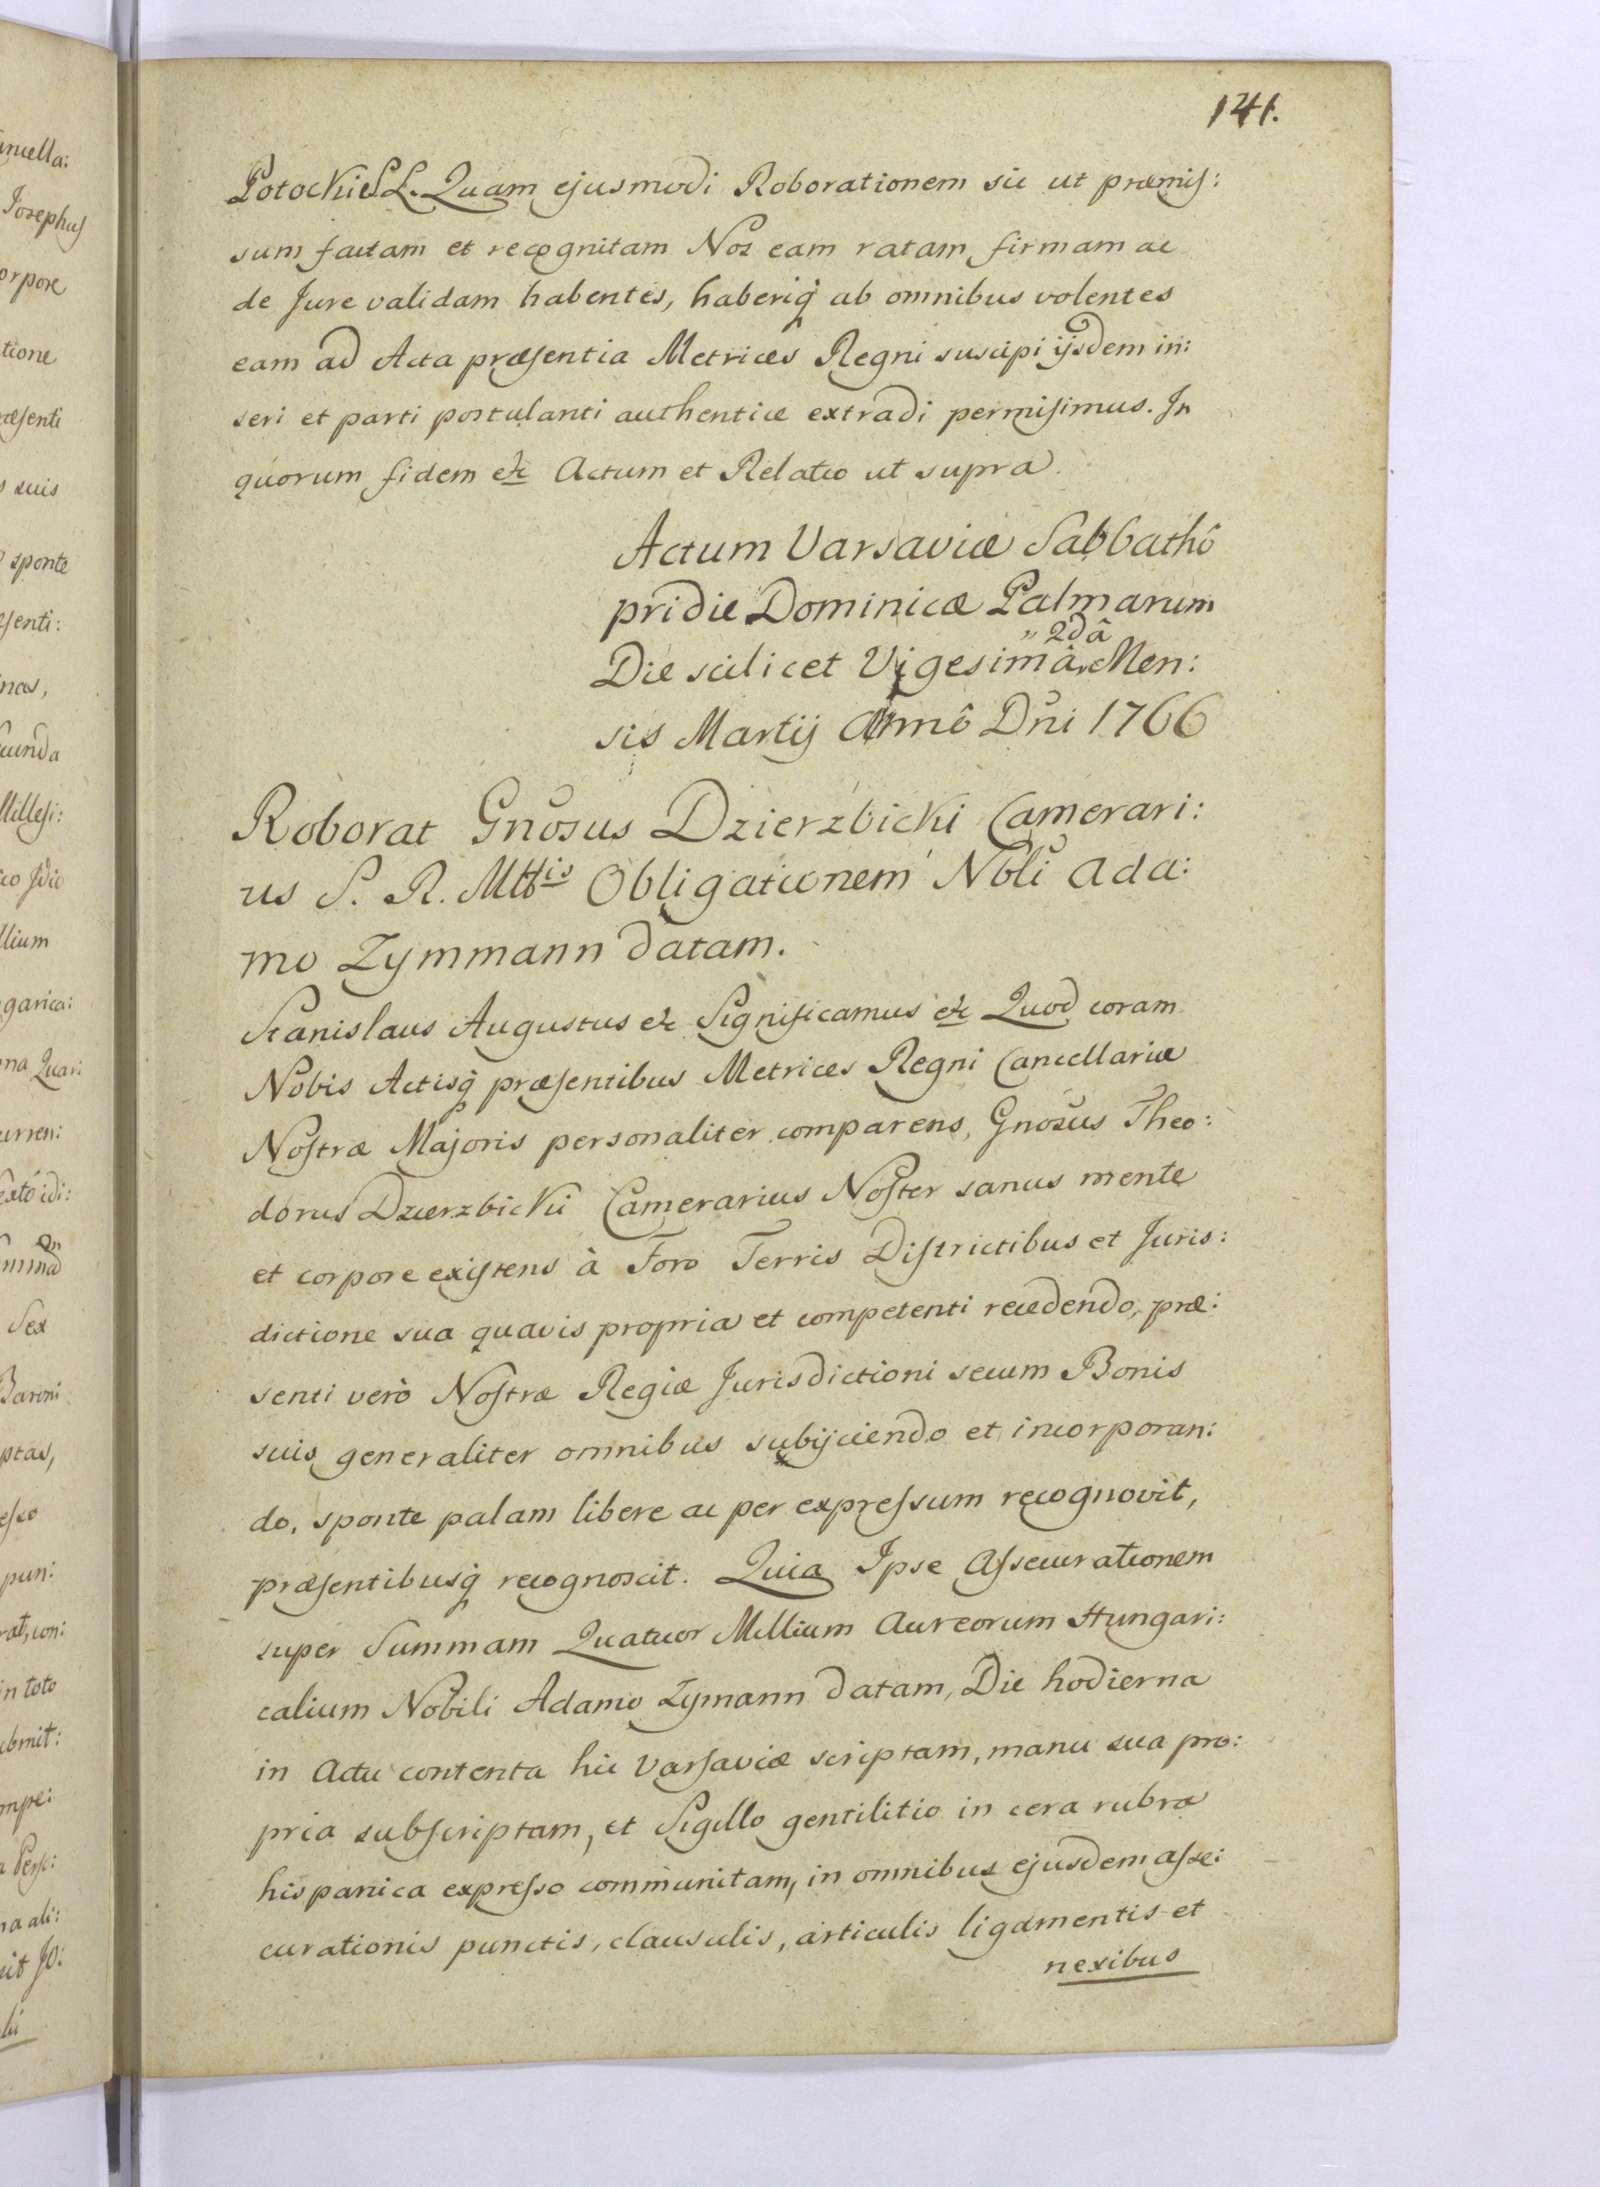 141.
Potocki LS. Quam ejusmodi Roborationem sic ut præmis:
sum factam et recognitam Nos eam ratam firmam ac
de Jure validam habentes, haberiq̃ ab omnibus volentes
eam ad Acta præsentia Metrices Regni suscipi ijsdem in:
seri et parti postulanti authentice extradi permisimus. In
quorum fidem &c Actum et Relatio ut supra.
Actum Varsaviæ Sabbathô
pridie Dominicæ Palmarum
Die scilicet Vigesimâ 2dâ Men:
sis Martij Annô Dñi 1766
Roborat Gnosus Dzierzbicki Camerari:
us S. R. Mttis Obligationem Nbli Ada:
mo Zymmann datam.
Stanislaus Augustus &c Significamus &c Quod coram
Nobis Actisq̃ præsentibus Metrices Regni Cancellariæ
Nostræ Majoris personaliter comparens, Gnosus Theo:
dorus Dzierzbicki Camerarius Noster sanus mente
et corpore existens à Foro Terris Districtibus et Juris:
dictione sua quavis propria et competenti recedendo, præ:
senti verò Nostræ Regiæ Jurisdictioni secum Bonis
suis generaliter omnibus subijciendo et incorporan:
do, sponte palam libere ac per expressum recognovit,
præsentibusq̃ recognoscit. Quia Ipse Assecurationem
super Summam Quatuor Millium Aureorum Hungari:
calium Nobili Adamo Zymann datam, Die hodierna
in Actu contenta hic Varsaviæ scriptam, manu sua pro:
pria subscriptam, et Sigillo gentilitio in cera rubra
hispanica expresso communitam, in omnibus ejusdem asse:
curationis punctis, clausulis, articulis ligamentis et
nexibus